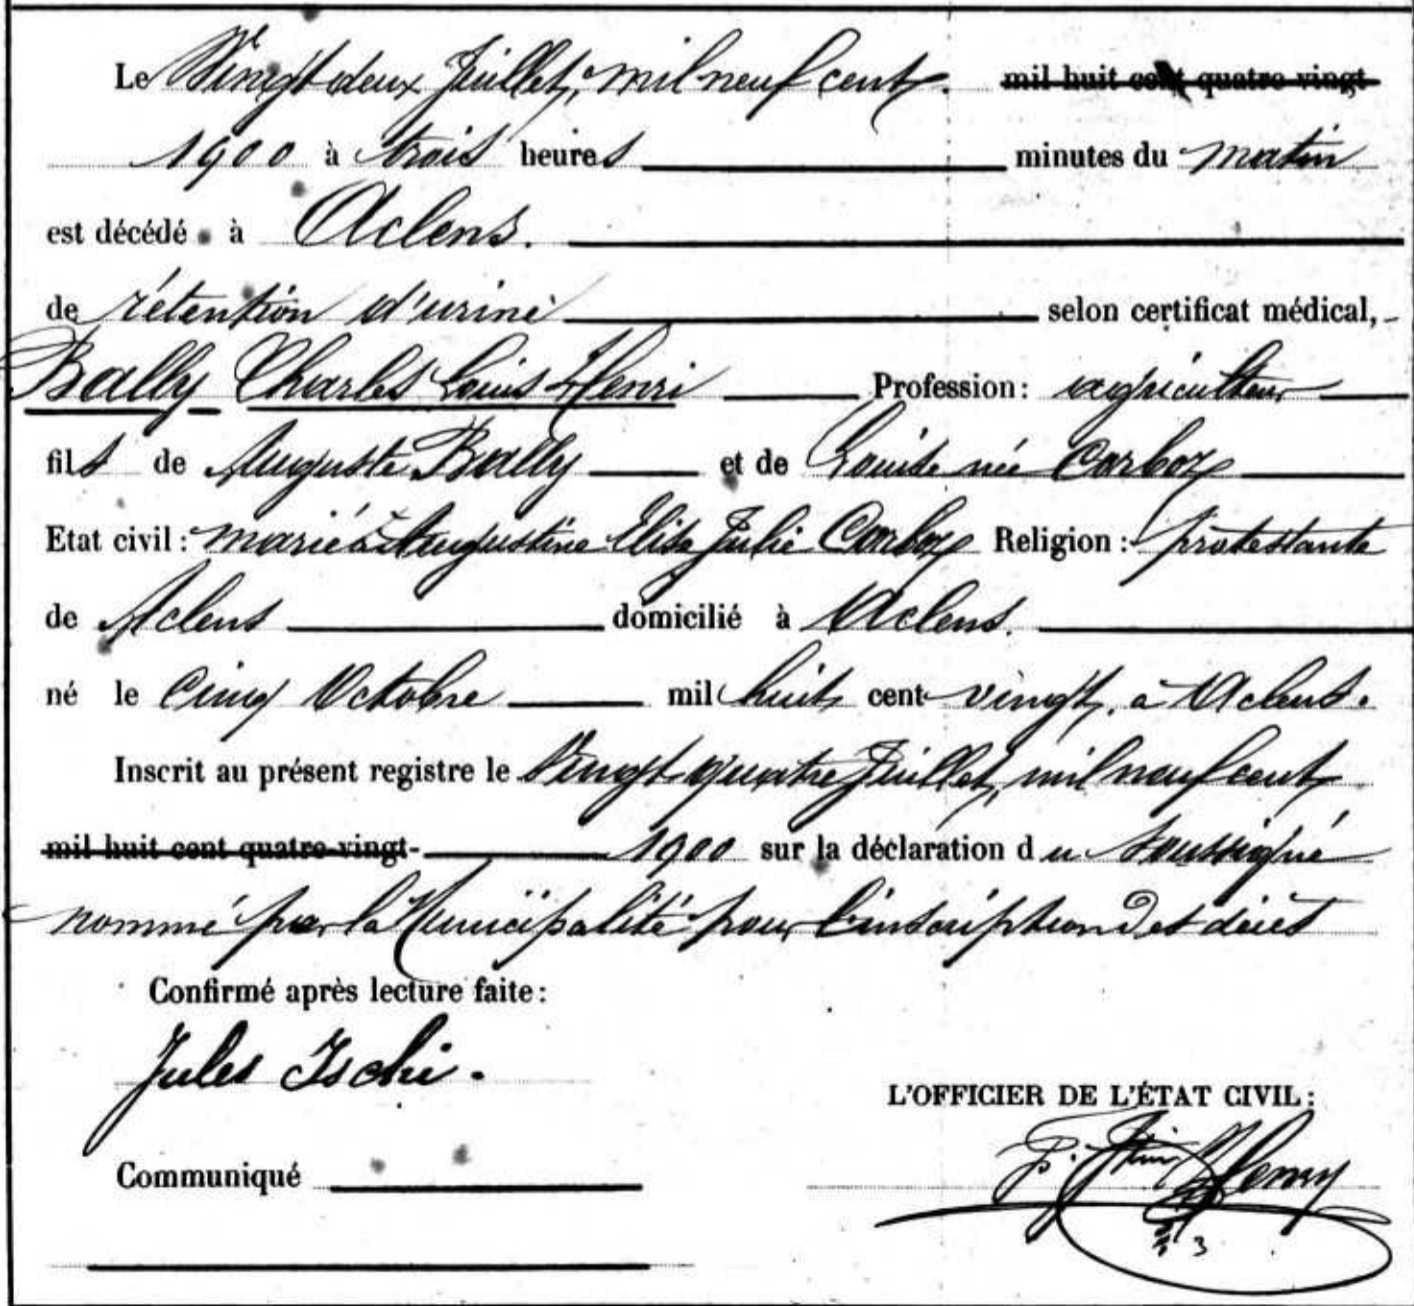 Le Vingt deux Juillet, mil neuf cent. mil huit cent quatre vingt
1900 à trois heures minutes du matin
est décédé à Aclens.
de rétention d'urine selon certificat médical,
Bally Charles Louis Henri Profession: agriculteur
fils de Auguste Bally et de Louise née Corboz
Etat civil: marié à Augustine Elise Julie Corboz Religion: protestante
de Aclens domicilié à Aclens.
né le Cinq Octobre mil huit cent vingt, à Aclens.
Inscrit au présent registre le Vingt quatre Juillet, mil neuf cent
mil huit cent quatre-vingt- 1900 sur la déclaration du soussigné
nommé par la Municipalité pour l'inscription des décès
Confirmé après lecture faite:
Jules Ischi.
L'OFFICIER DE L'ÉTAT CIVIL:
Communiqué